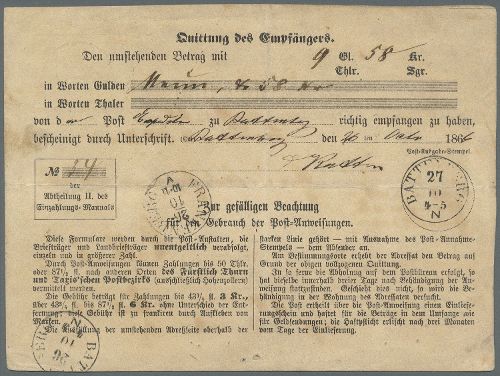 Quittung des Empfängers.
Den umstehenden Betrag mit 9 Gl. 58 Kr.
Thlr. Sgr.
in Worten Gulden Neun, & 58 Kr
in Worten Thaler
von der Post Expedition zu Battenberg richtig empfangen zu haben,
bescheinigt durch Unterschrift. Battenberg den 26 ten Octo 1866
Post-Ausgabe-Stempel.
№ 14
der
Abtheilung II. des
Einzahlungs-Manuals
BATTENBERG
27
10
4-5
N
Zur gefälligen Beachtung
für den Gebrauch der Post-Anweisungen.
Diese Formulare werden durch die Post-Anstalten, die
Briefträger und Landbriefträger unentgeltlich verabfolgt, einzeln
und in größerer Zahl.
Durch Post-Anweisungen können Zahlungen bis 50 Thlr.
oder 87½ fl. nach anderen Orten des Fürstlich Thurn
und Taxis'schen Postbezirks (ausschließlich Hohenzollern)
vermittelt werden.
Die Gebühr beträgt für Zahlungen bis 43¾ fl. 3 Kr.,
über 43¾ fl. bis 87½ fl. 6 Kr. ohne Unterschied der Ent-
fernung; diese Gebühr ist zu frankiren durch Aufkleben von
Marken.
Die Ausfüllung der umstehenden Adreßseite oberhalb der
starken Linie gehört – mit Ausnahme des Post-Annahme-
Stempels – dem Absender an.
Am Bestimmungsorte erhebt der Adressat den Betrag auf
Grund der obigen vollzogenen Quittung.
Je ferne die Abholung auf dem Postbüreau erfolgt, so
hat dieselbe innerhalb dreier Tage nach Behändigung der An-
weisung stattzufinden. Geschieht dies nicht, so wird die Be-
händigung in der Wohnung des Adressaten versucht.
Die Post ertheilt über die Post-Anweisung einen Einliefe-
rungsschein und haftet für die Beträge in dem Umfange wie
für Geldsendungen; die Haftpflicht erlischt nach drei Monaten
vom Tage der Einlieferung.
BATTENBERG
26
10